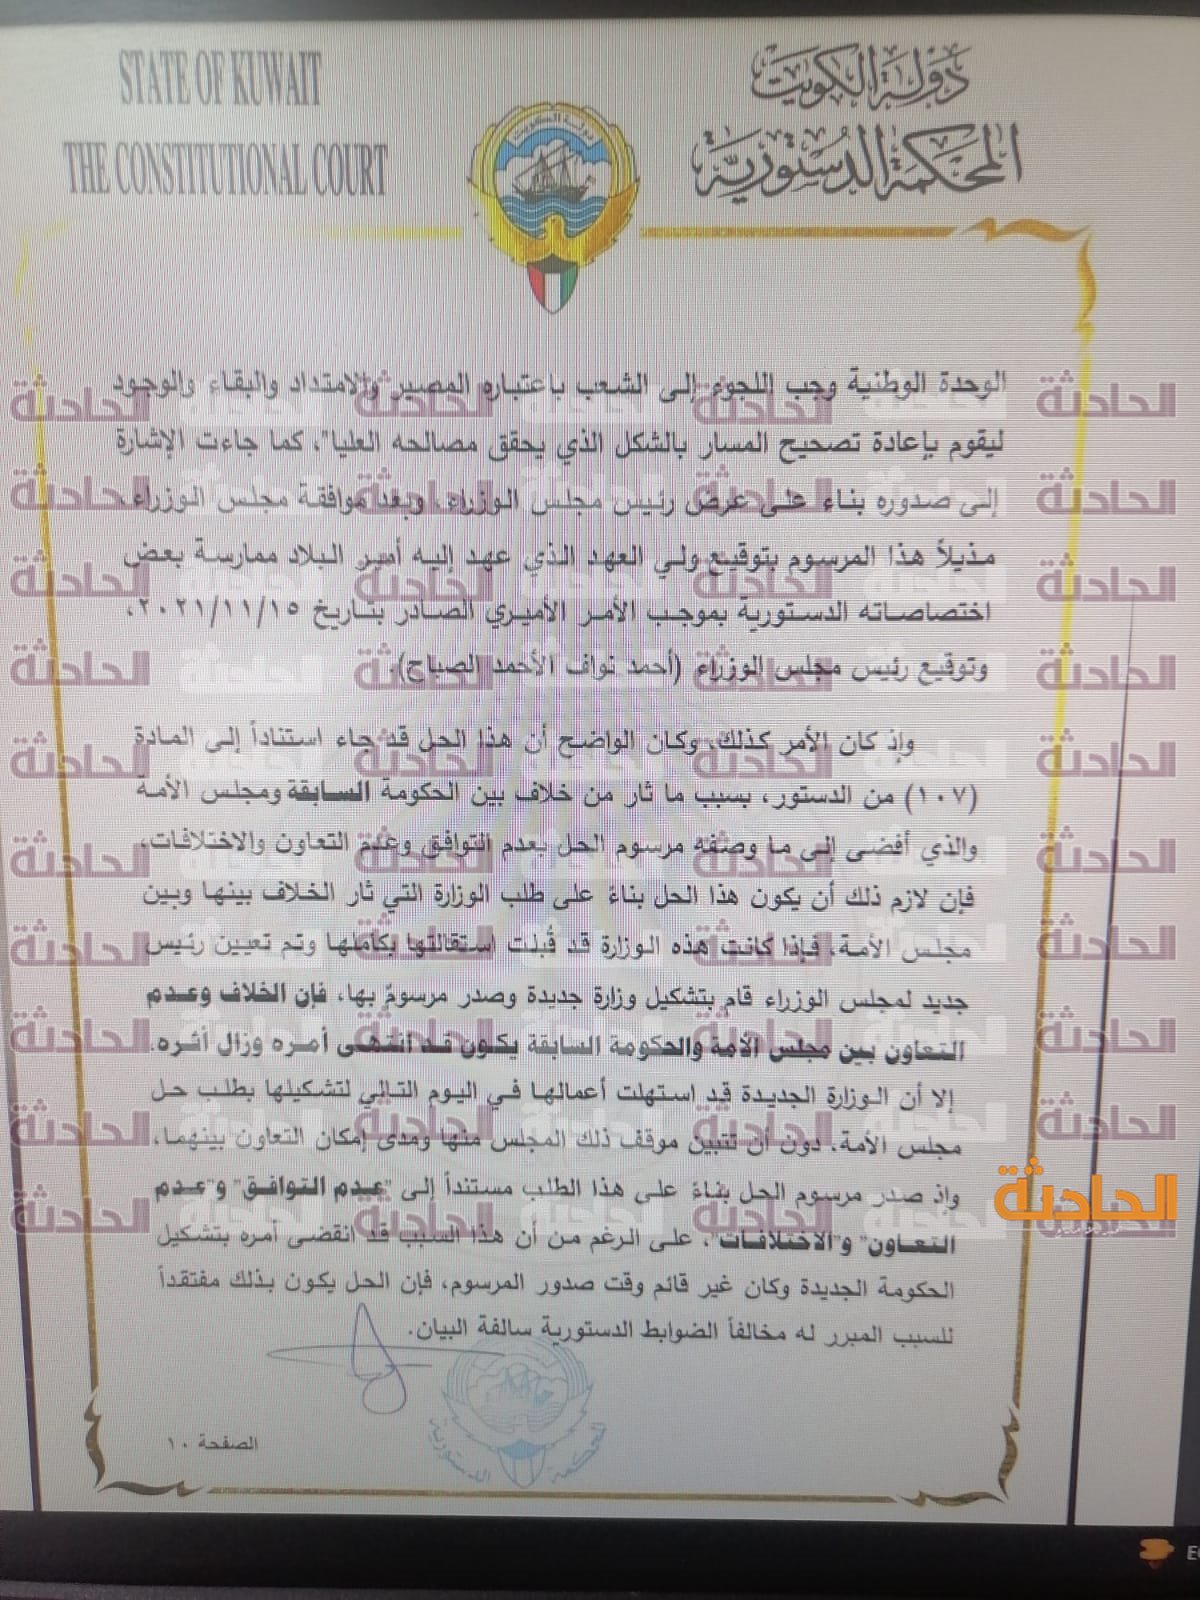 STATE OF KUWAIT
THE CONSTITUTIONAL COURT
دولة الكويت
المحكمة الدستورية
دولة الكويت
الوحدة الوطنية وجب اللجوء إلى الشعب باعتباره المصير والامتداد والبقاء والوجود
ليقوم بإعادة تصحيح المسار بالشكل الذي يحقق مصالحه العليا"، كما جاءت الإشارة
إلى صدوره بناء على عرض رئيس مجلس الوزراء، وبعد موافقة مجلس الوزراء،
مذيلاً هذا المرسوم بتوقيع ولي العهد الذي عهد إليه أمير البلاد ممارسة بعض
اختصاصاته الدستورية بموجب الأمر الأميري الصادر بتاريخ ٢٠٢١/١١/١٥،
وتوقيع رئيس مجلس الوزراء (أحمد نواف الأحمد الصباح).
وإذ كان الأمر كذلك، وكان الواضح أن هذا الحل قد جاء استناداً إلى المادة
(١٠٧) من الدستور، بسبب ما ثار من خلاف بين الحكومة السابقة ومجلس الأمة
والذي أفضى إلى ما وصفه مرسوم الحل بعدم التوافق وعدم التعاون والاختلافات،
فإن لازم ذلك أن يكون هذا الحل بناءً على طلب الوزارة التي ثار الخلاف بينها وبين
مجلس الأمة، فإذا كانت هذه الوزارة قد قُبلت استقالتها بكاملها وتم تعيين رئيس
جديد لمجلس الوزراء قام بتشكيل وزارة جديدة وصدر مرسومٌ بها، فإن الخلاف وعدم
التعاون بين مجلس الأمة والحكومة السابقة يكون قد انتهى أمره وزال أثره.
إلا أن الوزارة الجديدة قد استهلت أعمالها في اليوم التالي لتشكيلها بطلب حل
مجلس الأمة، دون أن تتبين موقف ذلك المجلس منها ومدى إمكان التعاون بينهما،
وإذ صدر مرسوم الحل بناءً على هذا الطلب مستنداً إلى "عدم التوافق" و"عدم
التعاون" و"الاختلافات"، على الرغم من أن هذا السبب قد انقضى أمره بتشكيل
الحكومة الجديدة وكان غير قائم وقت صدور المرسوم، فإن الحل يكون بذلك مفتقداً
للسبب المبرر له مخالفاً الضوابط الدستورية سالفة البيان.
المحكمة الدستورية
الصفحة ١٠
الحادثة